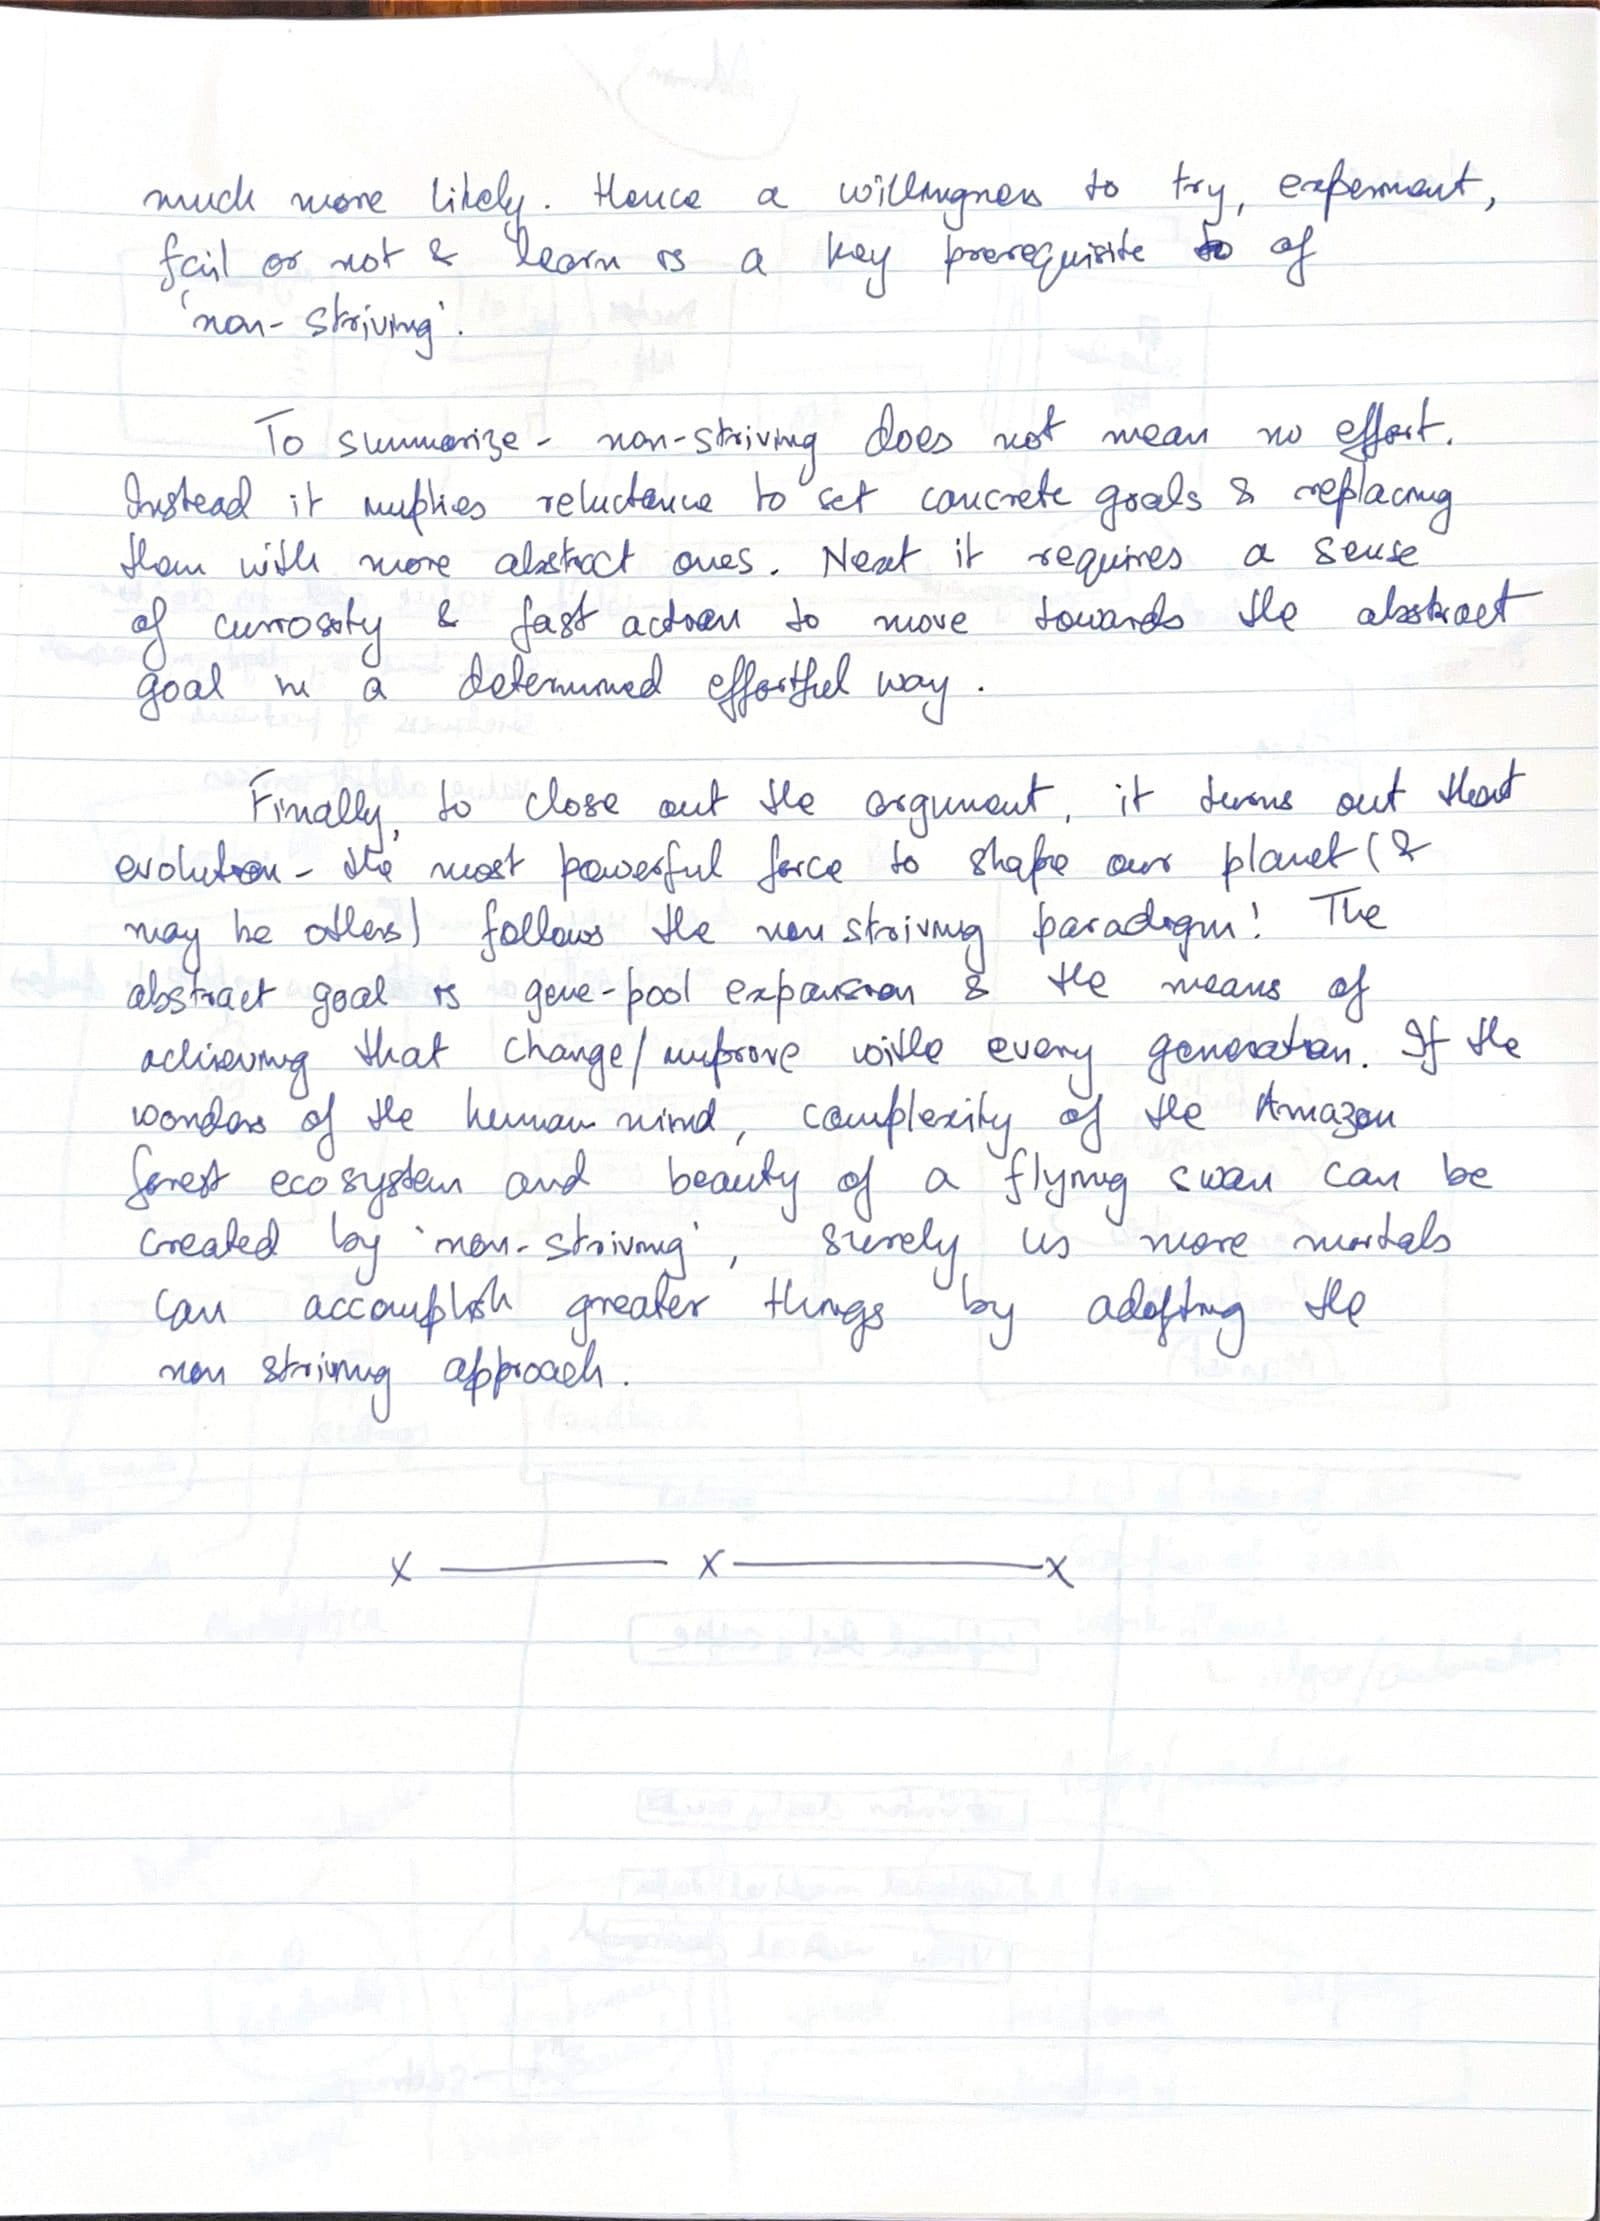 much more likely. Hence a willingness to try, experiment,
fail or not & learn is a key prerequisite of
'non-striving'.
To summarize - non-striving does not mean no effort.
Instead it implies reluctance to set concrete goals & replacing
them with more abstract ones. Next it requires a sense
of curiosity & fast action to move towards the abstract
goal in a determined effortful way.
Finally, to close out the argument, it turns out that
evolution - the most powerful force to shape our planet (&
may be others) follows the non striving paradigm! The
abstract goal is gene-pool expansion & the means of
achieving that change/improve with every generation. If the
wonders of the human mind, complexity of the Amazon
forest ecosystem and beauty of a flying swan can be
created by 'non-striving', surely us mere mortals
can accomplish greater things by adopting the
non striving approach.
x ——— x ——— x